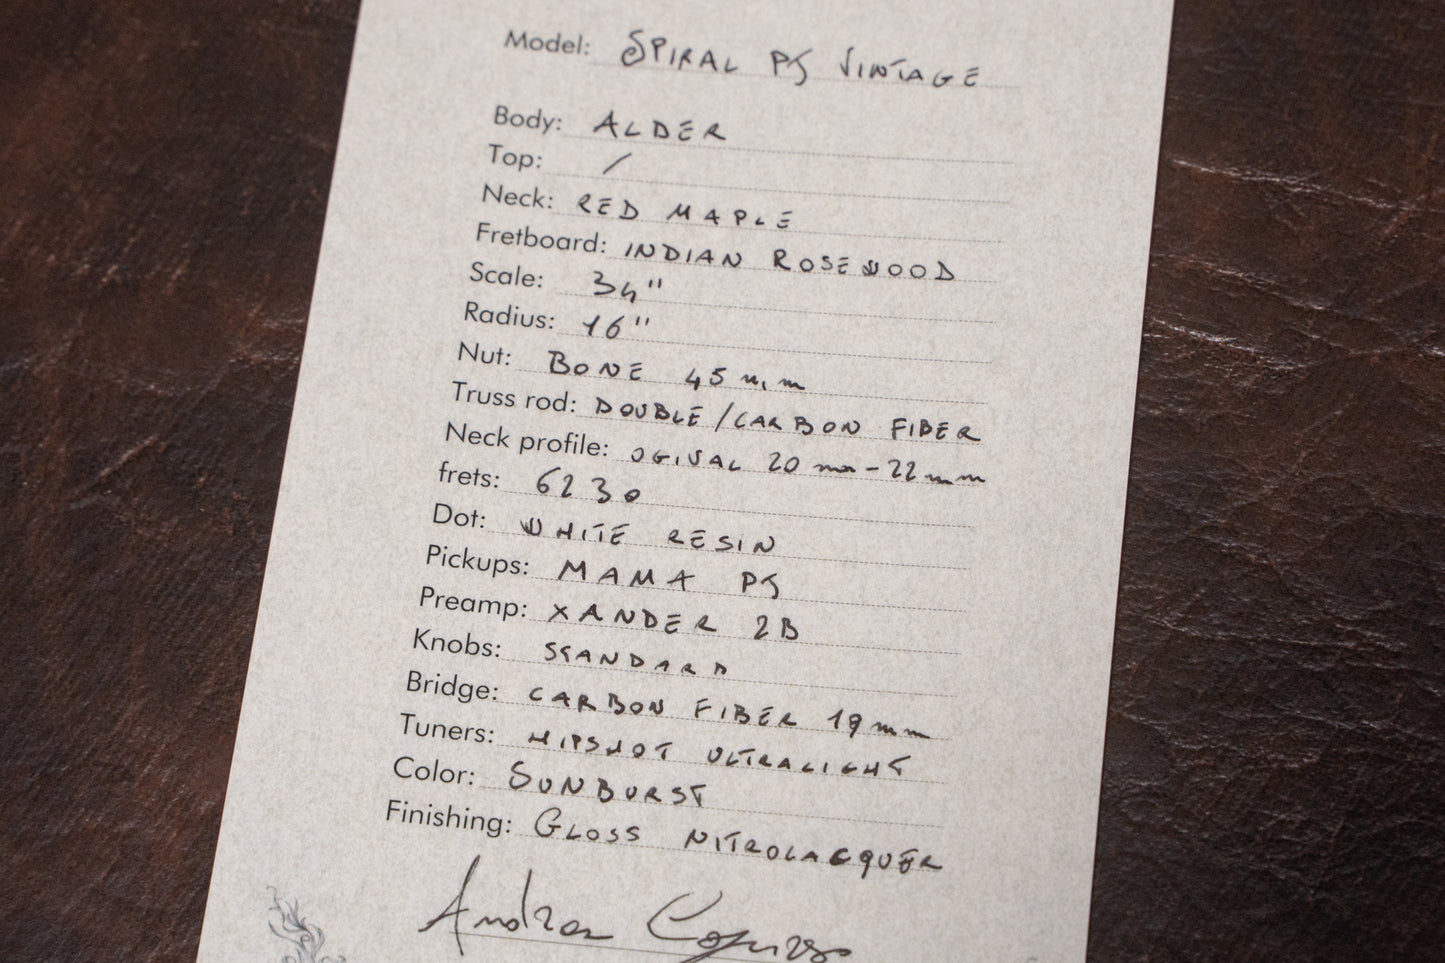 Model: SPIRAL PJ VINTAGE
Body: ALDER
Top: /
Neck: RED MAPLE
Fretboard: INDIAN ROSEWOOD
Scale: 34"
Radius: 16"
Nut: BONE 45 mm
Truss rod: DOUBLE/CARBON FIBER
Neck profile: OGIVAL 20 mm - 22 mm
frets: 6230
Dot: WHITE RESIN
Pickups: MAMA PJ
Preamp: XANDER 2B
Knobs: STANDARD
Bridge: CARBON FIBER 19 mm
Tuners: HIPSHOT ULTRALIGHT
Color: SUNBURST
Finishing: GLOSS NITROLACQUER
Andrea